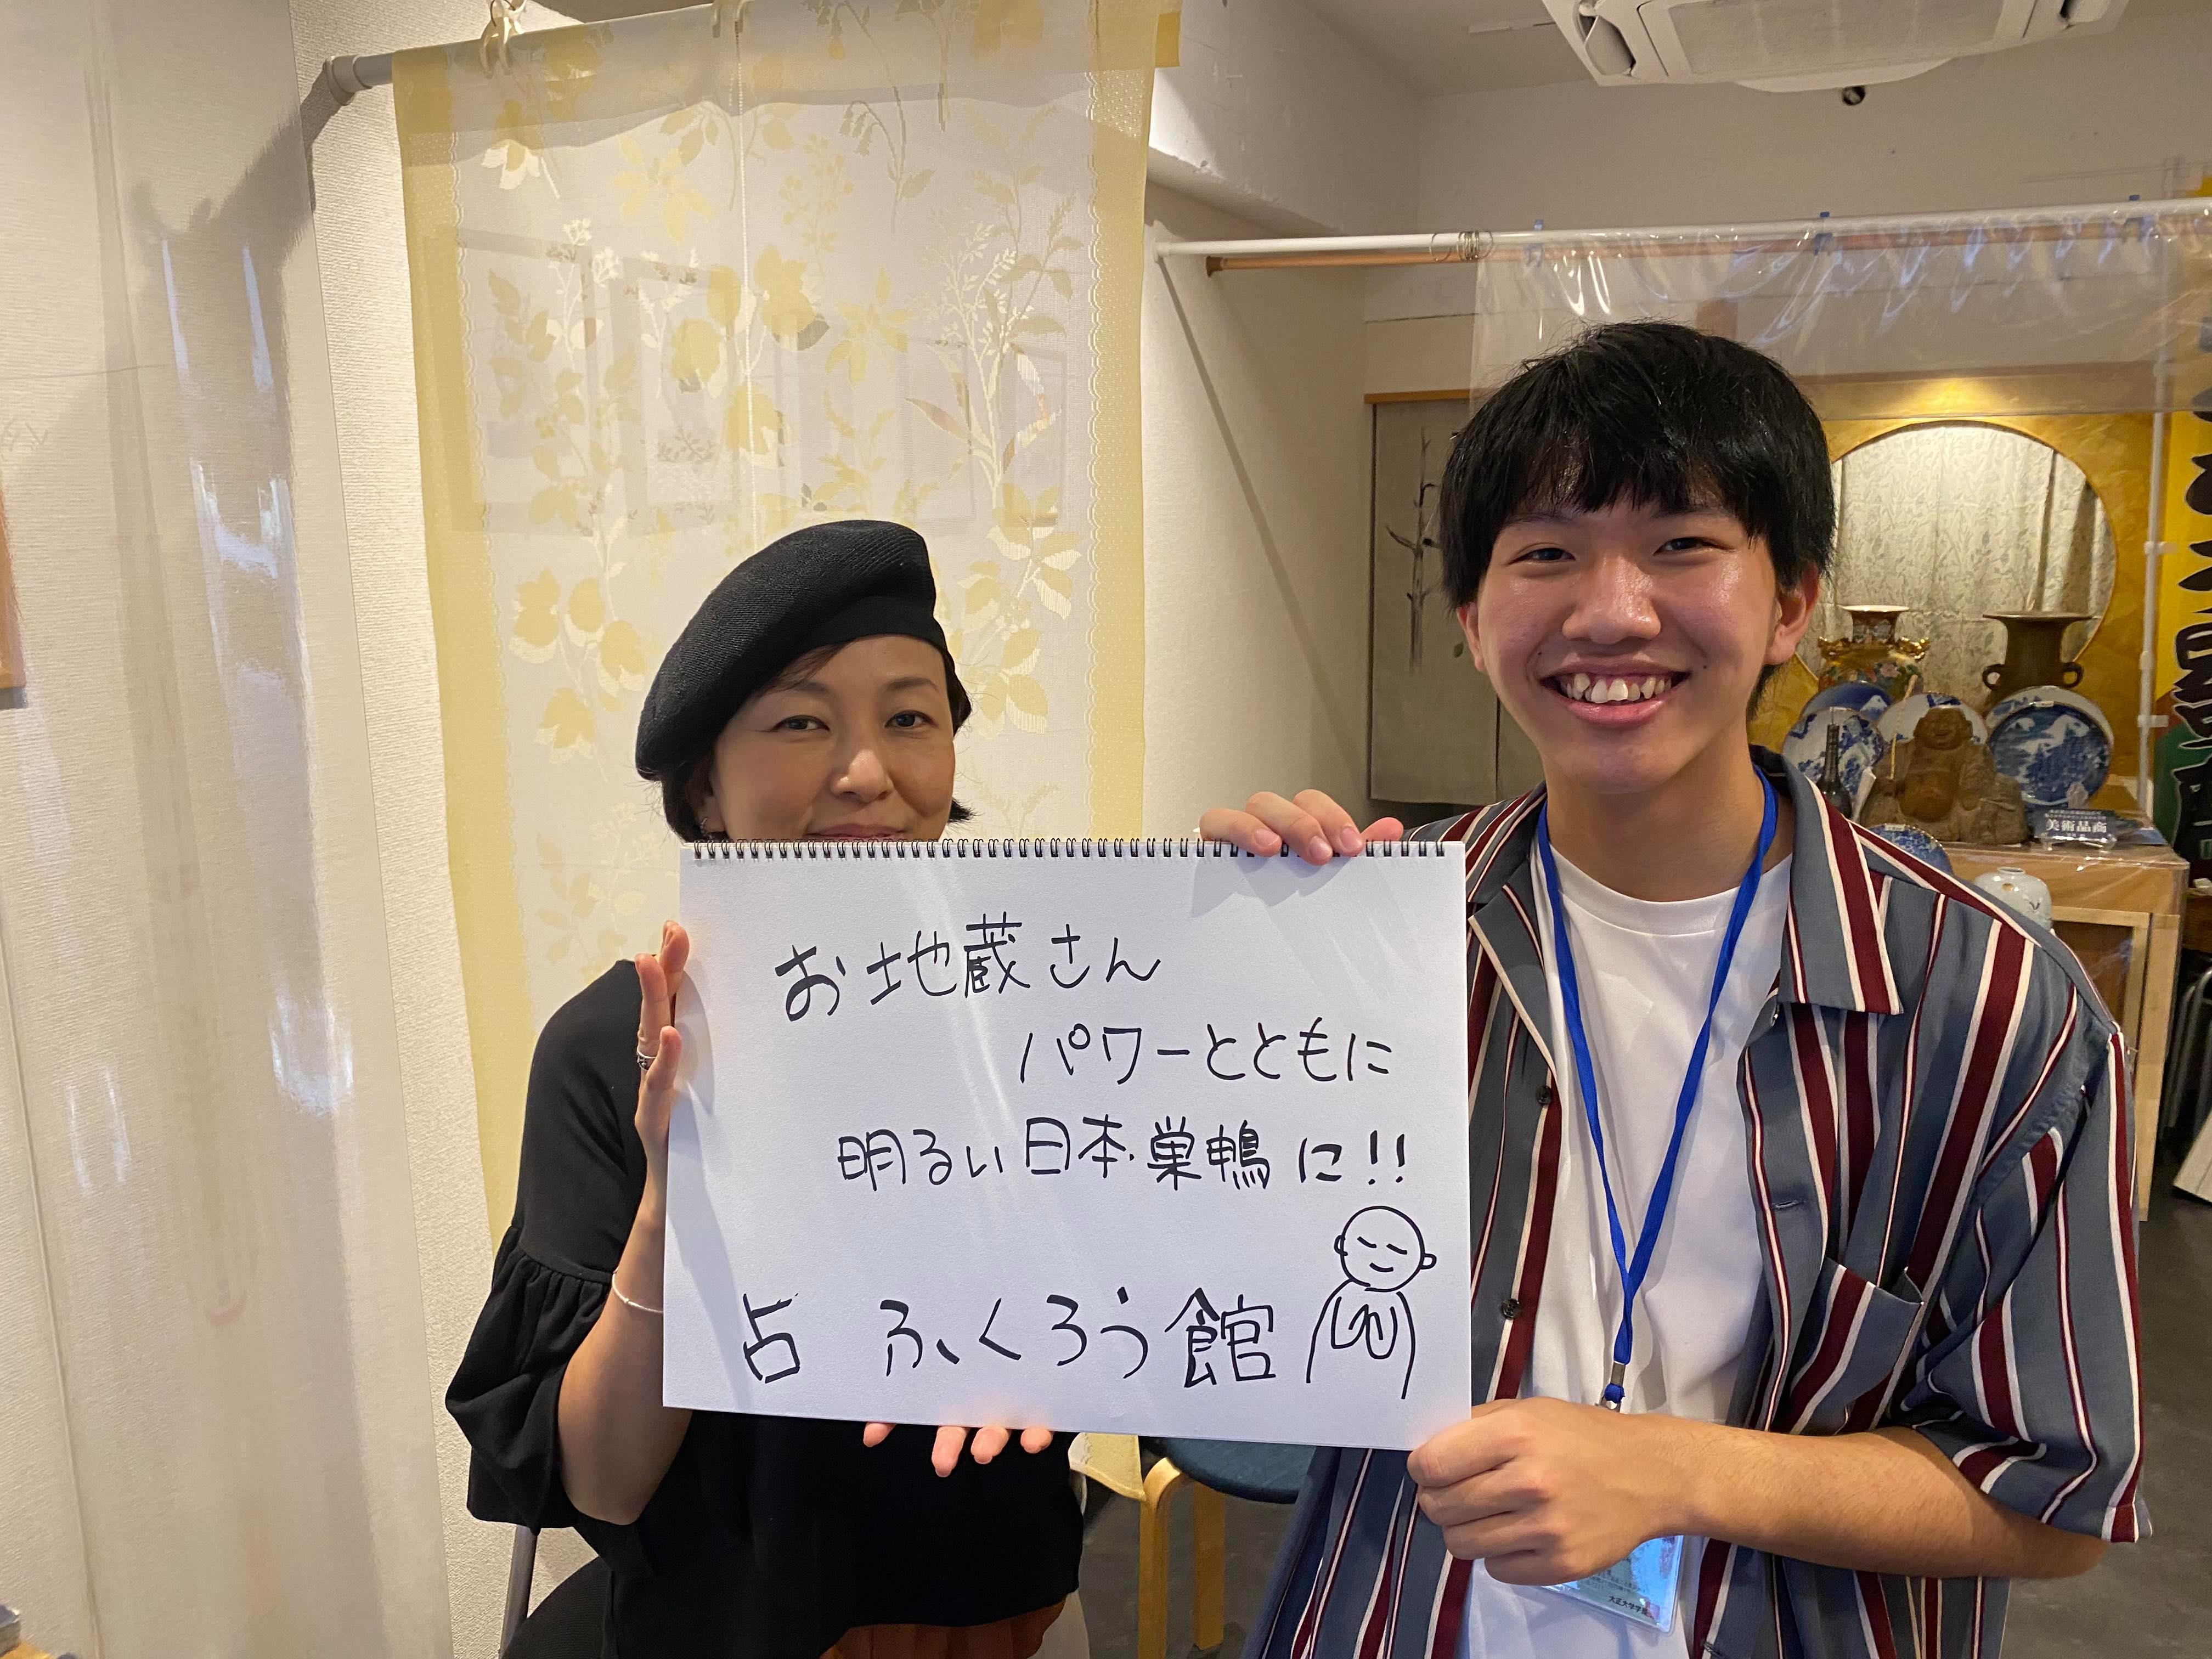 お地蔵さん
パワーとともに
明るい日本・巣鴨に!!
占 ふくろう館
美術品商
大正大学学長